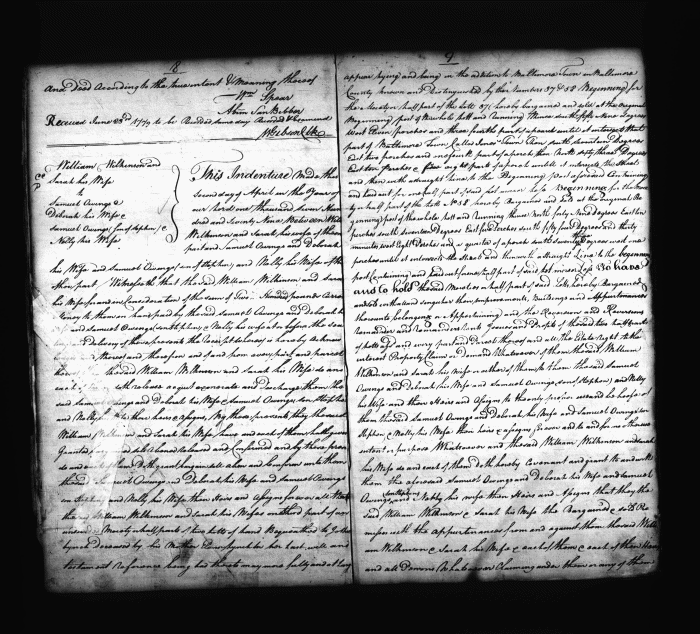 8
and Deed According to the true intent & Meaning thereof
Wm Spear
Abm Van Bibber
Received June 23d 1779 to be Recorded same day Recorded & Examined
Wm Gibson Clk
William Wilkinson and
Sarah his Wife
to
Samuel Owings &
Deborah his Wife &
Samuel Owings (son of Stephen) &
Nelly his Wife
This Indenture Made the
second day of April in the Year of
our Lord one thousand seven Hun
dred and seventy Nine Between Will
Wilkinson and Sarah his wife of the
part and Samuel Owings and Deborah
his Wife and Samuel Owings (son of Stephen) and Nelly his Wife of the
other part Witnesseth that the said William Wilkinson and Sarah
his Wife for and in Consideration of the sum of Five Hundred pounds
Money to them in hand paid by the said Samuel Owings and Deborah his
and Samuel Owings (son of Stephen) & Nelly his wife at or before the sea
Delivery of these presents the Receipt whereof is hereby Acknow
thereof and therefrom and of and from every part and parcel
thereof the said William Wilkinson and Sarah his Wife do and
each of them doth release acquit exonerate and discharge them the
said Samuel Owings and Deborah his Wife & Samuel Owings son Stephen
and Nelly his Wife their heirs & Assigns, By these presents they the said
William Wilkinson and Sarah his Wife have and each of them hath
Granted bargained sold Aliened Released and Confirmed and by these presen
do and each of them doth grant bargain sell alien and Confirm unto them
the said Samuel Owings and Deborah his Wife and Samuel Owings
son Stephen and Nelly his Wife their Heirs and Assigns forever all that
the said William Wilkinson and Sarah his Wifes
Moiety or half part of two lots of land Bequeathed by
Lynch Deceased by his Mother Lynch in her last will and
testament Reference being had thereto may more fully and at large
9
appear lying and being in the addition to Baltimore Town in Baltimore
County known and Distinguished by their Numbers 37 & 38 Beginning for
the Moiety or half part of the lott 37 hereby bargained and sold at the original
Beginning part of the whole lott and Running thence South fifty Nine Degrees
West Eleven perches and three fourth parts of a perch until it intersects that
part of Baltimore Town Called Jones's Town then South seventeen Degrees
East two perches and
East ten perches
and then with a straight line to the Beginning part aforesaid Containing
and laid out for one half part of said lot more or less Beginning for the Moie
ty or half part of the lott No 38 hereby Bargained and sold at the original Be
gining part of the whole lott and running thence North forty Nine Degrees East ten
perches South seventeen Degrees East perches South fifty four Degrees and thirty
minutes West Eight perches and a quarter of a perch
perches until it intersects the Street and then with a straight Line to the beginning
part Containing and laid out for one half part of said lot more or Less To have
and to hold the said Moieties or half parts of said Lotts hereby Bargained
and sold with and singular the improvements, Buildings and Appurtenances
thereunto belonging or in Appertaining and the Reversion and Reversions
Remainder and Remainders with Grounds and Profits of the said two half parts
of lotts and every part and Parcel thereof and all the Estate right title
interest Property Claim & Demand Whatsoever of them the said William
Wilkinson and Sarah his Wife or either of them to them the said Samuel
Owings and Deborah his Wife and Samuel Owings (son of Stephen) and Nelly
his Wife and their Heirs and Assigns to the only proper use and behoof of
them the said Samuel Owings and Deborah his Wife and Samuel Owings son
Stephen & Nelly his Wife their heirs & assigns forever and to and for no other use
intent or purpose Whatsoever and the said William Wilkinson and Sarah
his Wife do and each of them doth hereby Covenant and grant to and with
them the aforesaid Samuel Owings and Deborah his Wife and Samuel
Owings son Stephen & Nelly his wife their Heirs and Assigns that they the
said William Wilkinson & Sarah his Wife the Bargained & sold Pre
mises with the appurtenances from and against them the said Willi
am Wilkinson & Sarah his Wife & each of them & each of their Heirs
and all Persons Whatsoever Claiming under them or any of them